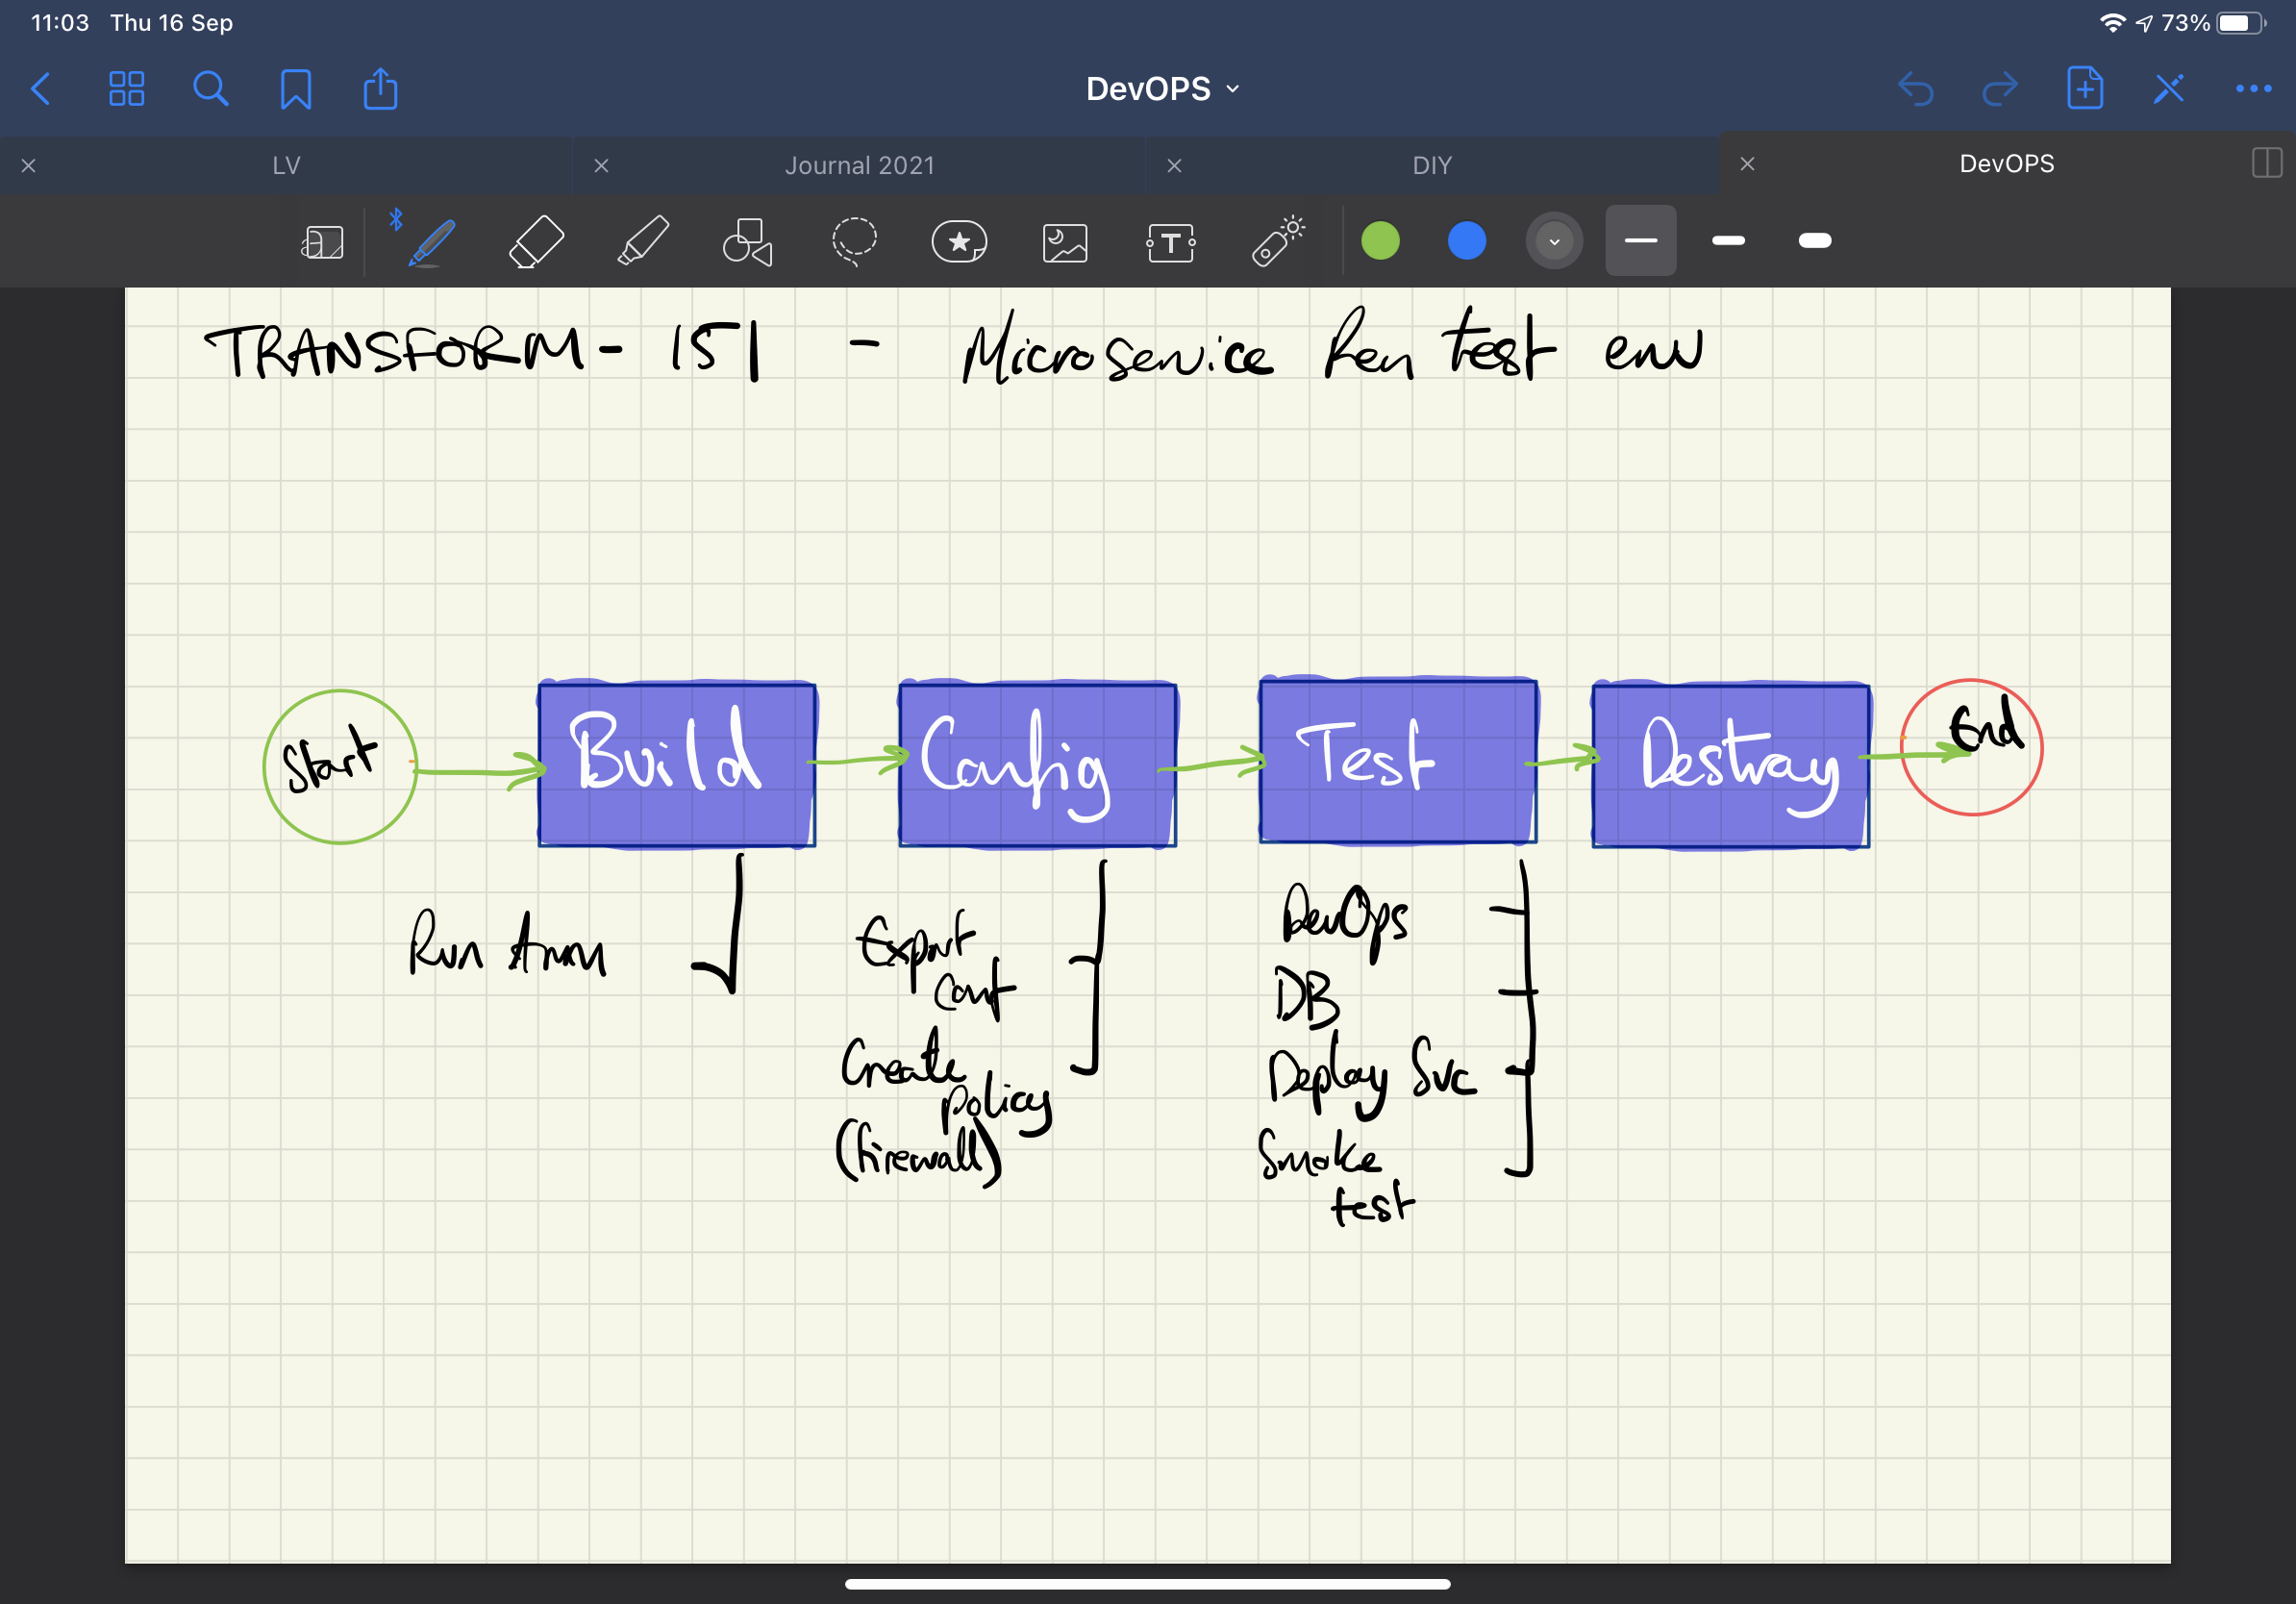 11:03 Thu 16 Sep 73%
DevOPS
LV Journal 2021 DIY DevOPS
TRANSFORM-151 - Microservice Run test env
Start Build Config Test Destroy End
Run Arm
Export
Cert
Create
Policy
(firewall)
DevOps
DB
Deploy Svc
Smoke
test